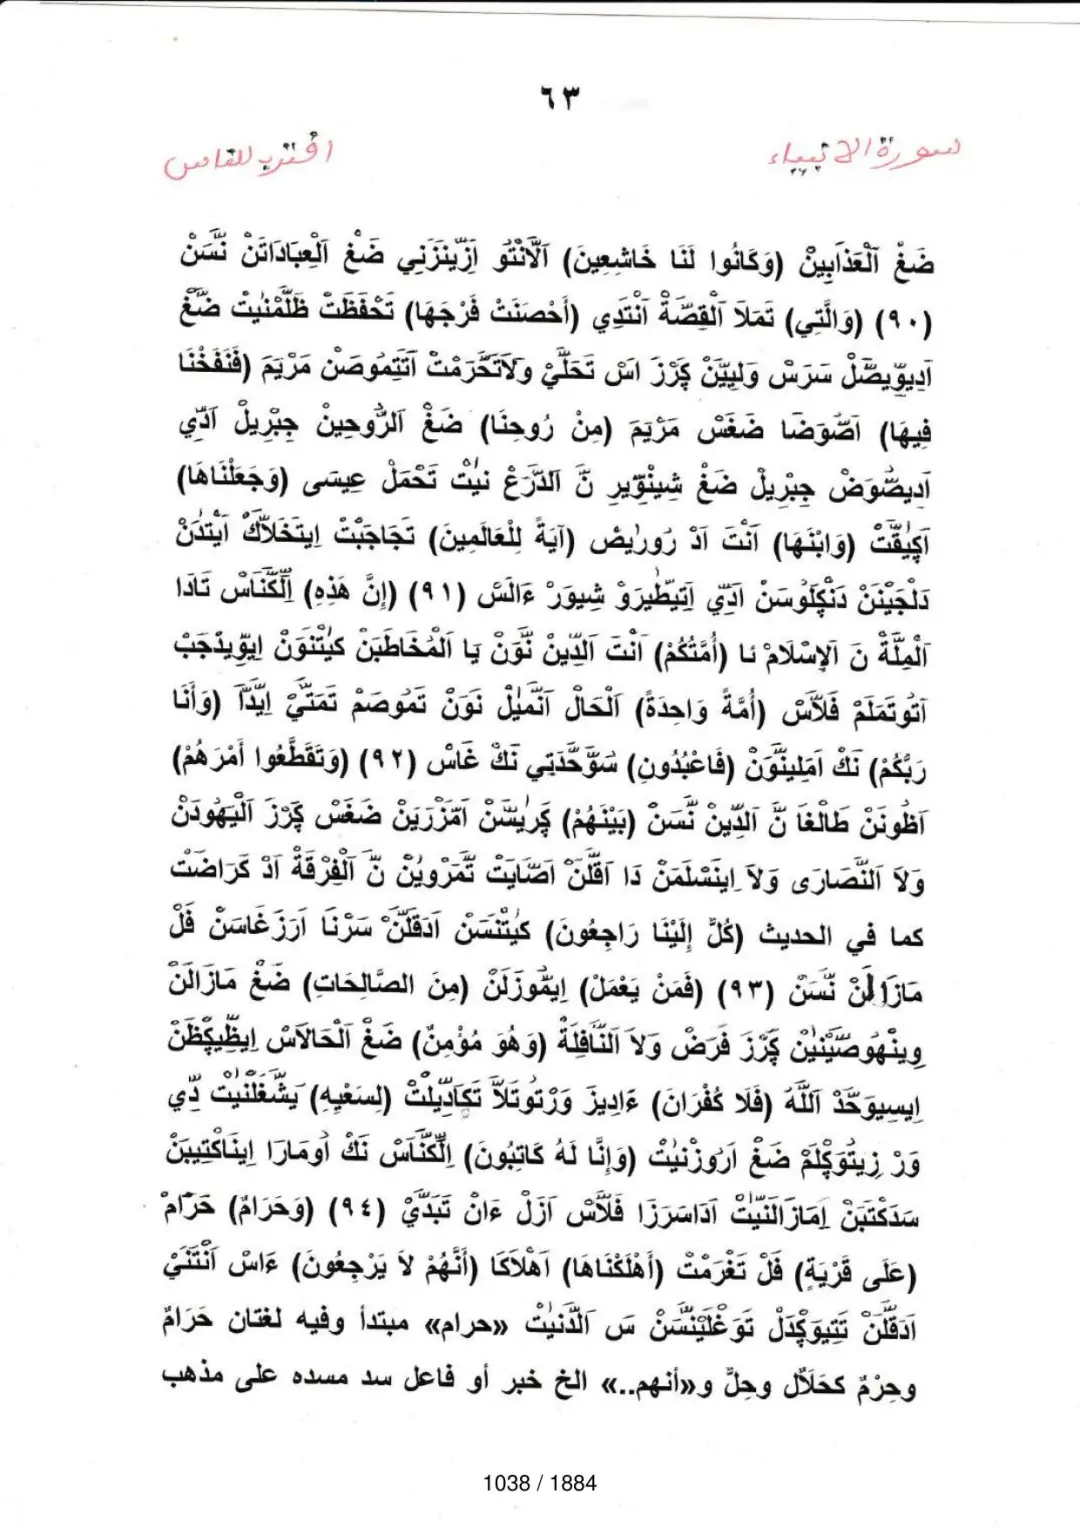 ٦٣
سورة الانبياء
اقترب للناس
ضَغْ آلْعَذَابِينْ (وَكَانُوا لَنَا خَاشِعِينَ) آلَّانْتُو اَزِّينَزَنِي ضَغْ آلْعِبَادَاتَنْ نَّسَنْ
(٩٠) (وَالَّتِي) تَمَلَا آلْقِصَّةْ آنْتَدِي (أَحْصَنَتْ فَرْجَهَا) تَحْفَظَتْ ظَلَّمْنٰيتْ ضَغْ
آدِيوِّيصَّلْ سَرَسْ وَلِيِيَّنْ ڮَرَزْ اسْ تَحَلَّيْ وَلَاتَحَّرَمْتْ آتَّتِمُوصَنْ مَرْيَمَ (فَنَفَخْنَا
فِيهَا) آصُّوَضَا ضَغَسْ مَرْيَمَ (مِنْ رُوحِنَا) ضَغْ آلرُّوحِينْ جِبْرِيلْ آدِّي
آدِيصُّوَضْ جِبْرِيلْ ضَغْ شِينْوِّيرِ نَّ آلدِّرَعْ نٰيتْ تَحْمَلْ عِيسَى (وَجَعَلْنَاهَا)
آكِيُقَّتْ (وَابْنَهَا) آنْتَ آدْ رُورٰيضْ (آيَةً لِلْعَالَمِينَ) تَجَاجَبْتْ اِيتَخَلَاَّكْ آيْتَدَنْ
دَلْجَيْنَنْ دَنْڮَلُوسَنْ آدِّي آتِيطْيَرَوْ شِيوَرْ ءَالَسْ (٩١) (إِنَّ هَذِهِ) اِلَّكْنَاسْ تَادَا
آلْمِلَّةْ نَ آلاِسْلَامْ نَا (أُمَّتُكُمْ) آنْتَ آلدِّينْ نَّوَنْ يَا آلْمُخَاطَبَنْ كَيْتَنَوَنْ اِيوِّيدْجَبْ
آتُوتَمَلَمْ فَلَّاسْ (أُمَّةً وَاحِدَةً) آلْحَالْ آنْمَيْلْ نَوَنْ تَمُوصَمْ تَمَتَّيْ اِيَّدَا (وَأَنَا
رَبُّكُمْ) نَكْ آمَلِينَّوَنْ (فَاعْبُدُونِ) سَوَّحَّدَتِي نَكْ غَاسْ (٩٢) (وَتَقَطَّعُوا أَمْرَهُمْ)
آظُونَنْ طَالْغَا نَّ آلدِّينْ نَّسَنْ (بَيْنَهُمْ) ڮَرٰيسَّنْ آمَّزْرَيَنْ ضَغَسْ ڮَرَزْ آلْيَهُودَنْ
وَلَا آلنَّصَارَى وَلَا اِينَسْلَمَنْ دَا آقَّلَنْ آصَّايَتْ تَّمَرْوِيُنْ نَّ آلْفِرْقَةْ آدْ كَرَاضَتْ
كما في الحديث (كُلٌّ إِلَيْنَا رَاجِعُونَ) كَيْتَنَسَنْ آدَقَّلَنْ سَرْنَا آرَزْغَاسَنْ فَلْ
مَازَالَنْ نَّسَنْ (٩٣) (فَمَنْ يَعْمَلْ) اِيمُّوزَلَنْ (مِنَ الصَّالِحَاتِ) ضَغْ مَازَالَنْ
وِينْهُوصَيْنِينْ ڮَرَزْ فَرَضْ وَلَا آلنَّافِلَةْ (وَهُوَ مُؤْمِنٌ) ضَغْ آلْحَالَاسْ اِيظِّيڮَظَنْ
اِيسِيوَحَّدْ آللَّهْ (فَلَا كُفْرَانَ) ءَادِيزَ وَرْتُوتَلَّا تَكَادَّيْلْتْ (لِسَعْيِهِ) يَشَّغَلْنٰيتْ دِّي
وَرْ زِيتُوَڮِلَمْ ضَغْ آرُوزْنٰيتْ (وَإِنَّا لَهُ كَاتِبُونَ) اِلَّكْنَاسْ نَكْ اُومَارَا اِينَاكْتِيبَنْ
سَدَكْتَبَنْ اِمَازَالَنّٰيتْ آدَاسَرَزَا فَلَّاسْ آزَلْ ءَانْ تَبَدَّيْ (٩٤) (وَحَرَامٌ) حَرَامْ
(عَلَى قَرْيَةٍ) فَلْ تَغْرَمْتْ (أَهْلَكْنَاهَا) آهْلَاكَا (أَنَّهُمْ لَا يَرْجِعُونَ) ءَاسْ آنْتَنَيْ
آدَقَّلَنْ تَتِيوَڮْدَلْ تَوَغْلَيْنَّسَنْ سَ آلدَّنْيٰتْ «حرام» مبتدأ وفيه لغتان حَرَامٌ
وحِرْمٌ كحَلَالٌ وحِلٌّ و«أنهم..» الخ خبر أو فاعل سد مسده على مذهب
1038 / 1884